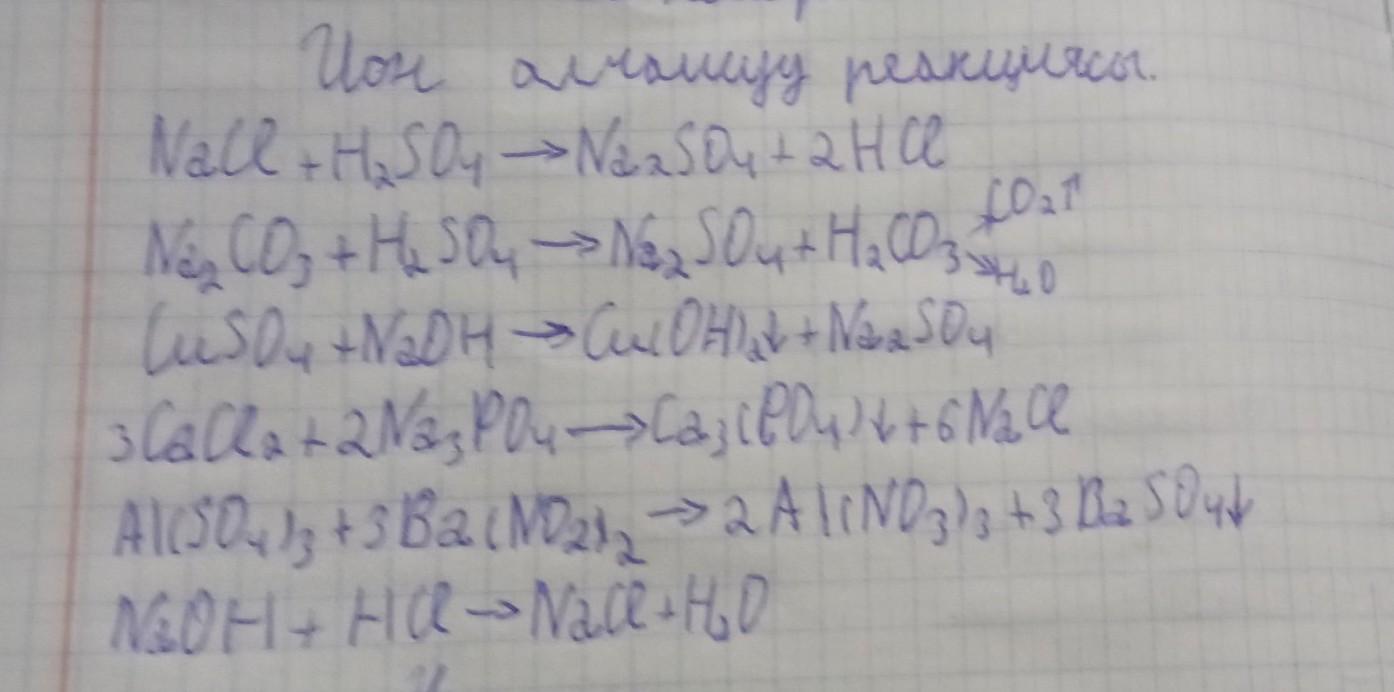 Ион алмашуу реакциясы.
NaCl + H₂SO₄ → Na₂SO₄ + 2HCl
Na₂CO₃ + H₂SO₄ → Na₂SO₄ + H₂CO₃ CO₂↑ H₂O
CuSO₄ + NaOH → Cu(OH)₂↓ + Na₂SO₄
3CaCl₂ + 2Na₃PO₄ → Ca₃(PO₄)↓ + 6NaCl
Al(SO₄)₃ + 3Ba(NO₂)₂ → 2Al(NO₃)₃ + 3BaSO₄↓
NaOH + HCl → NaCl + H₂O